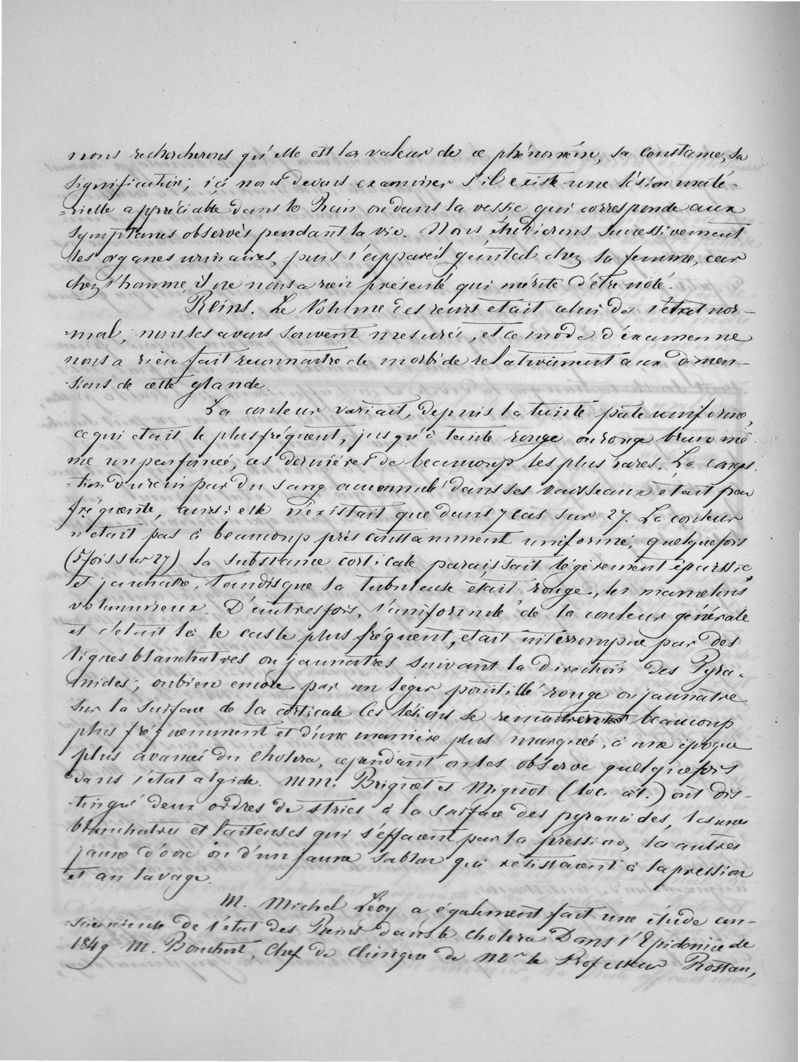 nous rechercherons qu'elle est la valeur de ce phénomène, sa constance, sa
signification; ici nous devons examiner s'il existe une lésion maté-
=rielle appréciable dans le Rein ou dans la vessie qui corresponde aux
symptômes observés pendant la vie. Nous étudierons successivement
les organes urinaires, puis l'appareil génital chez la femme, car
chez l'homme il ne nous a rien présenté qui mérite d'être noté.
Reins. Le Volume des reins était celui de l'état nor-
mal, nous les avons souvent mesurés, et ce mode d'examen ne
nous a rien fait reconnaitre de morbide relativement aux dimen-
sions de cette glande.
La couleur variait, depuis la teinte pâle uniforme,
ce qui était le plus fréquent, jusqu'à teinte rouge ou rouge brun mê-
me un peu foncé, ces dernières de beaucoup les plus rares. La conges-
=tion du rein par du sang accumulé dans ses vaisseaux était peu
fréquente, aussi elle n'existait que dans 7 cas sur 27. La couleur
n'était pas à beaucoup près constamment uniforme, quelquefois
(5 fois sur 27) la substance corticale paraissait légèrement épaissie
et jaunatre, tandis que la tubuleuse était rouge, les mamelons
volumineux. D'autres fois, l'uniformité de la couleur générale
et c'était là le cas le plus fréquent, était interrompue par des
lignes blanchatres ou jaunatres suivant la direction des Pyra-
mides; ou bien encore par un léger pointillé rouge ou jaunatre
sur la surface de la corticale. Ces lésions se remontrent beaucoup
plus fréquemment et d'une manière plus marquée, à une époque
plus avancée du cholera, cependant on les observe quelquefois
dans l'état algide. MM. Briquet et Mignot (loc. cit.) ont dis-
tingué deux ordres de stries à la surface des pyramides, les unes
blanchatres et laiteuses qui s'effacent par la pression, les autres
jaune d'ocre ou d'un jaune sablon qui résistaient à la pression
et au lavage.
M. Michel Lévy a également fait une étude con-
sciencieuse de l'état des Reins dans le cholera. Dans l'Epidémie de
1849 M. Bouchut, Chef de clinique de Mr le Professeur Rostan,